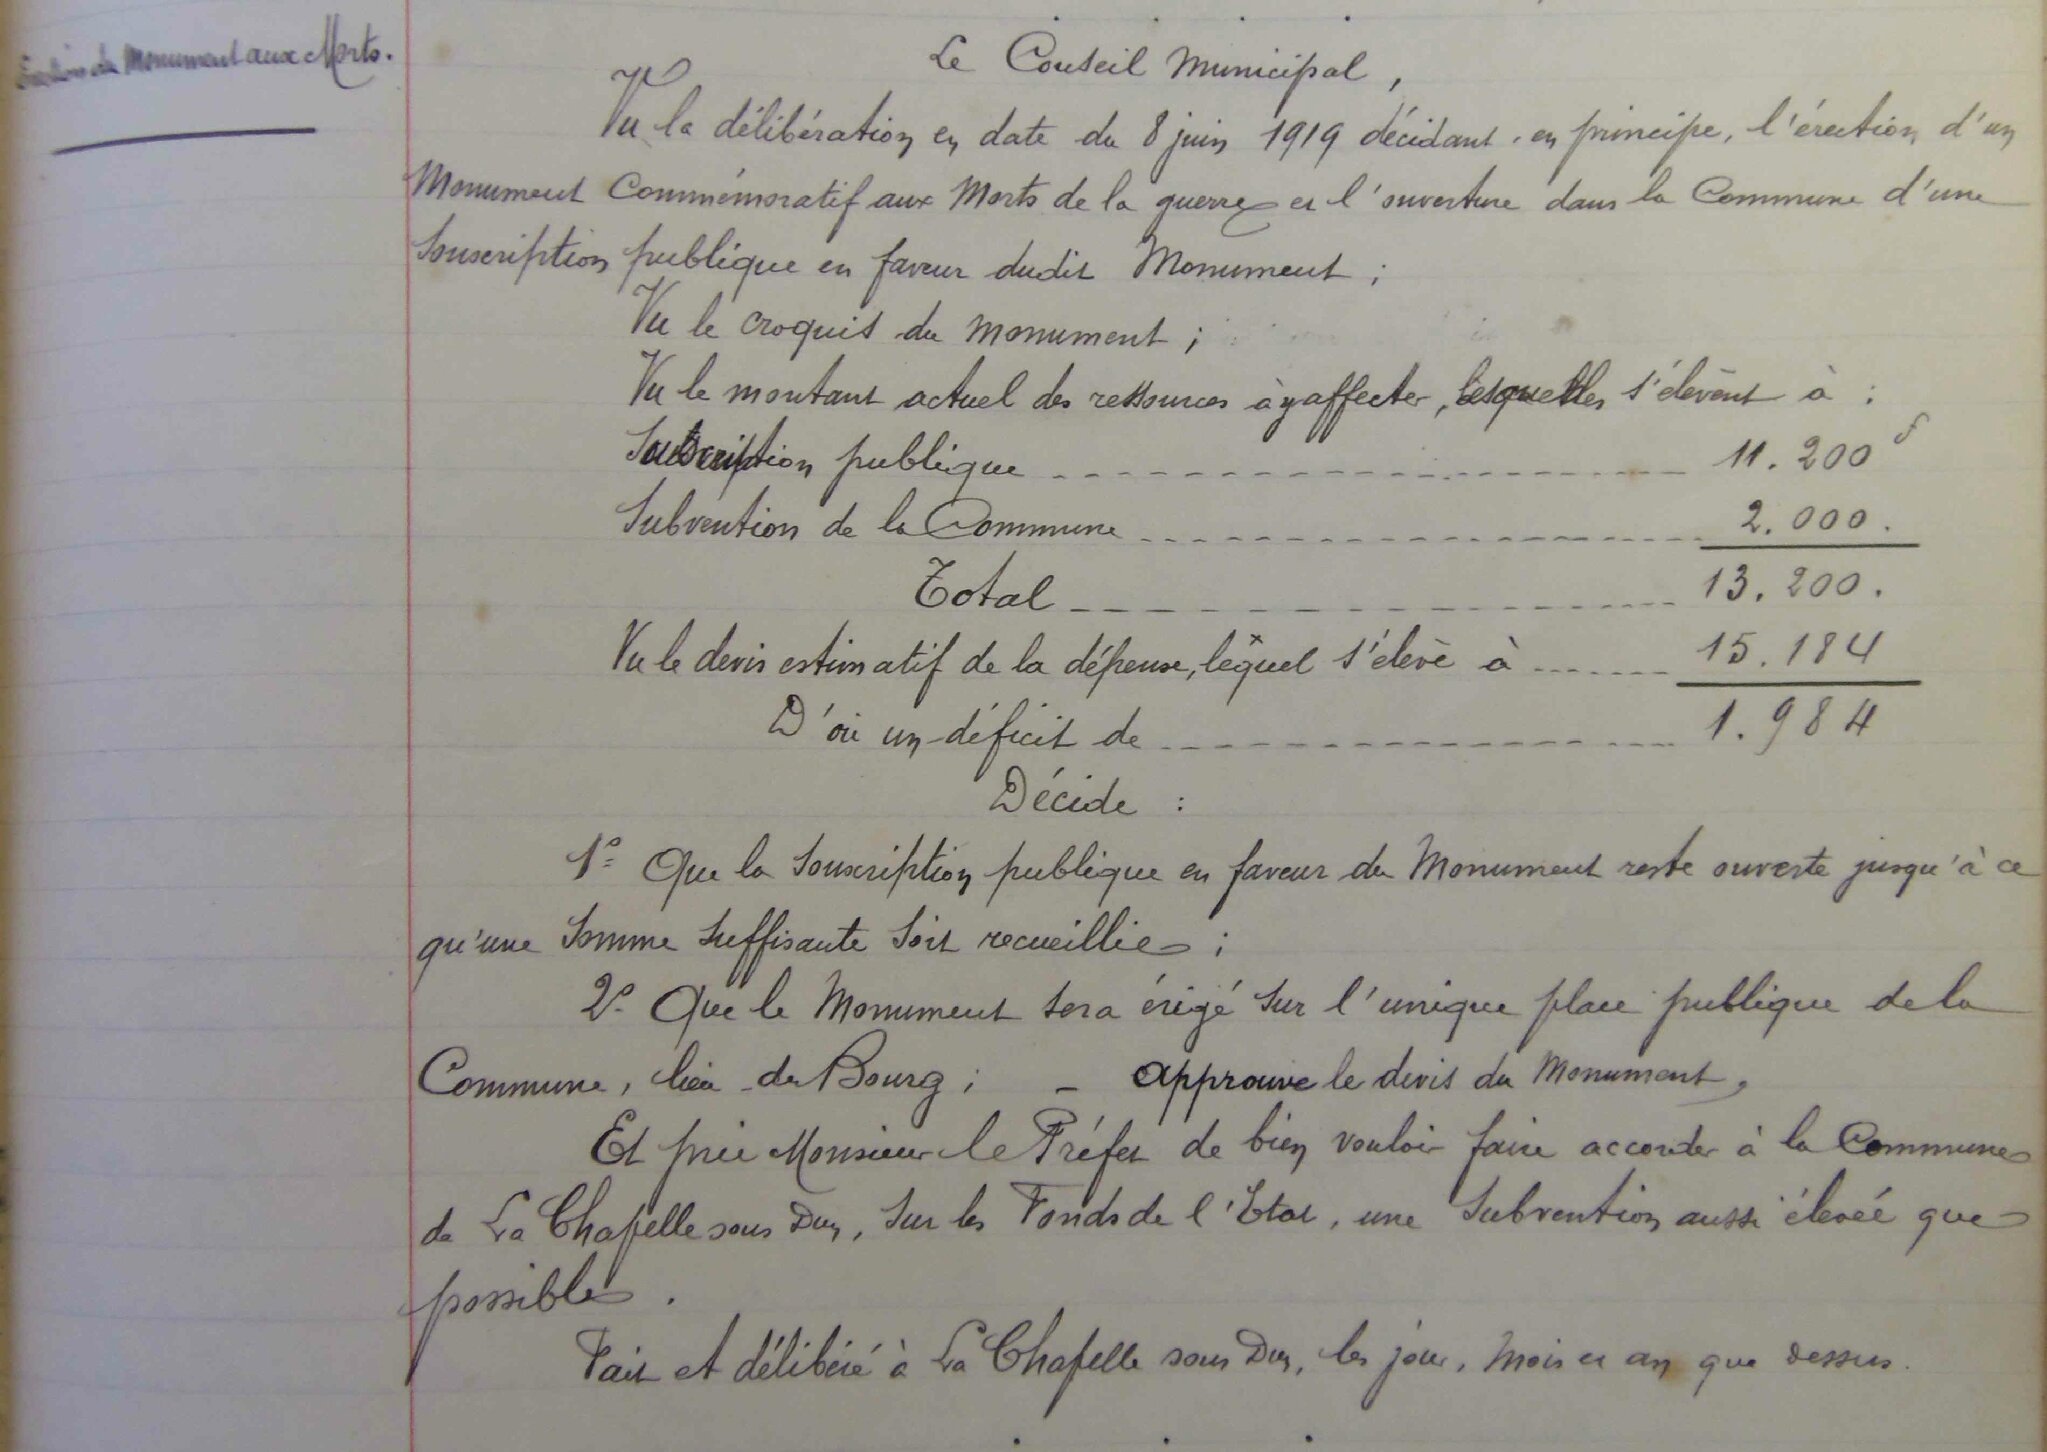 Erection du Monument aux Morts.
Le Conseil Municipal,
Vu la délibération en date du 8 juin 1919 décidant, en principe, l'érection d'un
Monument Commémoratif aux Morts de la guerre et l'ouverture dans la Commune d'une
Souscription publique en faveur dudit Monument ;
Vu le croquis du Monument ;
Vu le montant actuel des ressources à y affecter, lesquelles s'élèvent à :
Souscription publique 11.200 f
Subvention de la Commune 2.000.
Total 13.200.
Vu le devis estimatif de la dépense, lequel s'élève à 15.184
D'où un déficit de 1.984
Décide :
1° Que la Souscription publique en faveur du Monument reste ouverte jusqu'à ce
qu'une Somme Suffisante Soit recueillie ;
2° Que le Monument sera érigé Sur l'unique place publique de la
Commune, lieu du Bourg ; – approuve le devis du Monument,
Et prie Monsieur le Préfet de bien vouloir faire accorder à la Commune
de La Chapelle sous Dun, Sur les Fonds de l'Etat, une Subvention aussi élevée que
possible.
Fait et délibéré à La Chapelle sous Dun, les jour, Mois et an que dessus.